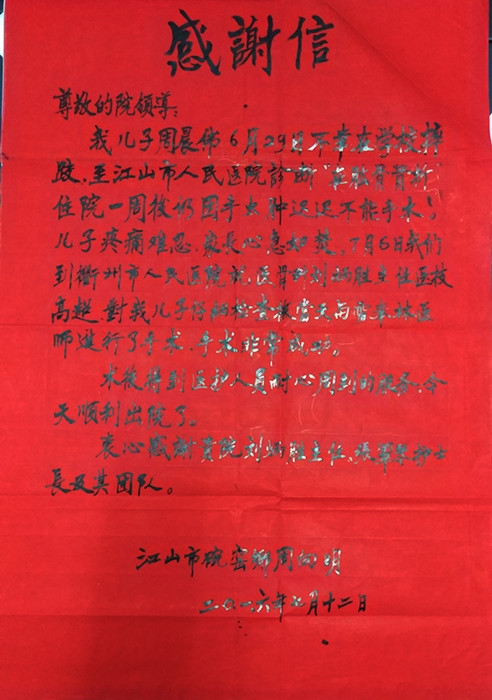 感謝信
尊敬的院领導：
我儿子周晨 6月29日不幸在学校摔
跤，至江山市人民医院診断"肱骨骨折"
住院一周後仍因手 肿迟迟不能手术！
儿子疼痛难忍，家長心急如焚，7月6日我们
到衢州市人民医院就医骨科刘炳胜主任医技
高超，對我儿子仔细检查後當天
師進行了手术，手术非常成功。
术後得到医护人员耐心周到的服务，今
天顺利出院了。
衷心感謝貴院刘炳胜主任、 护士
長及其团队。
江山市碗窑鄉周向明
二〇一六年七月十二日